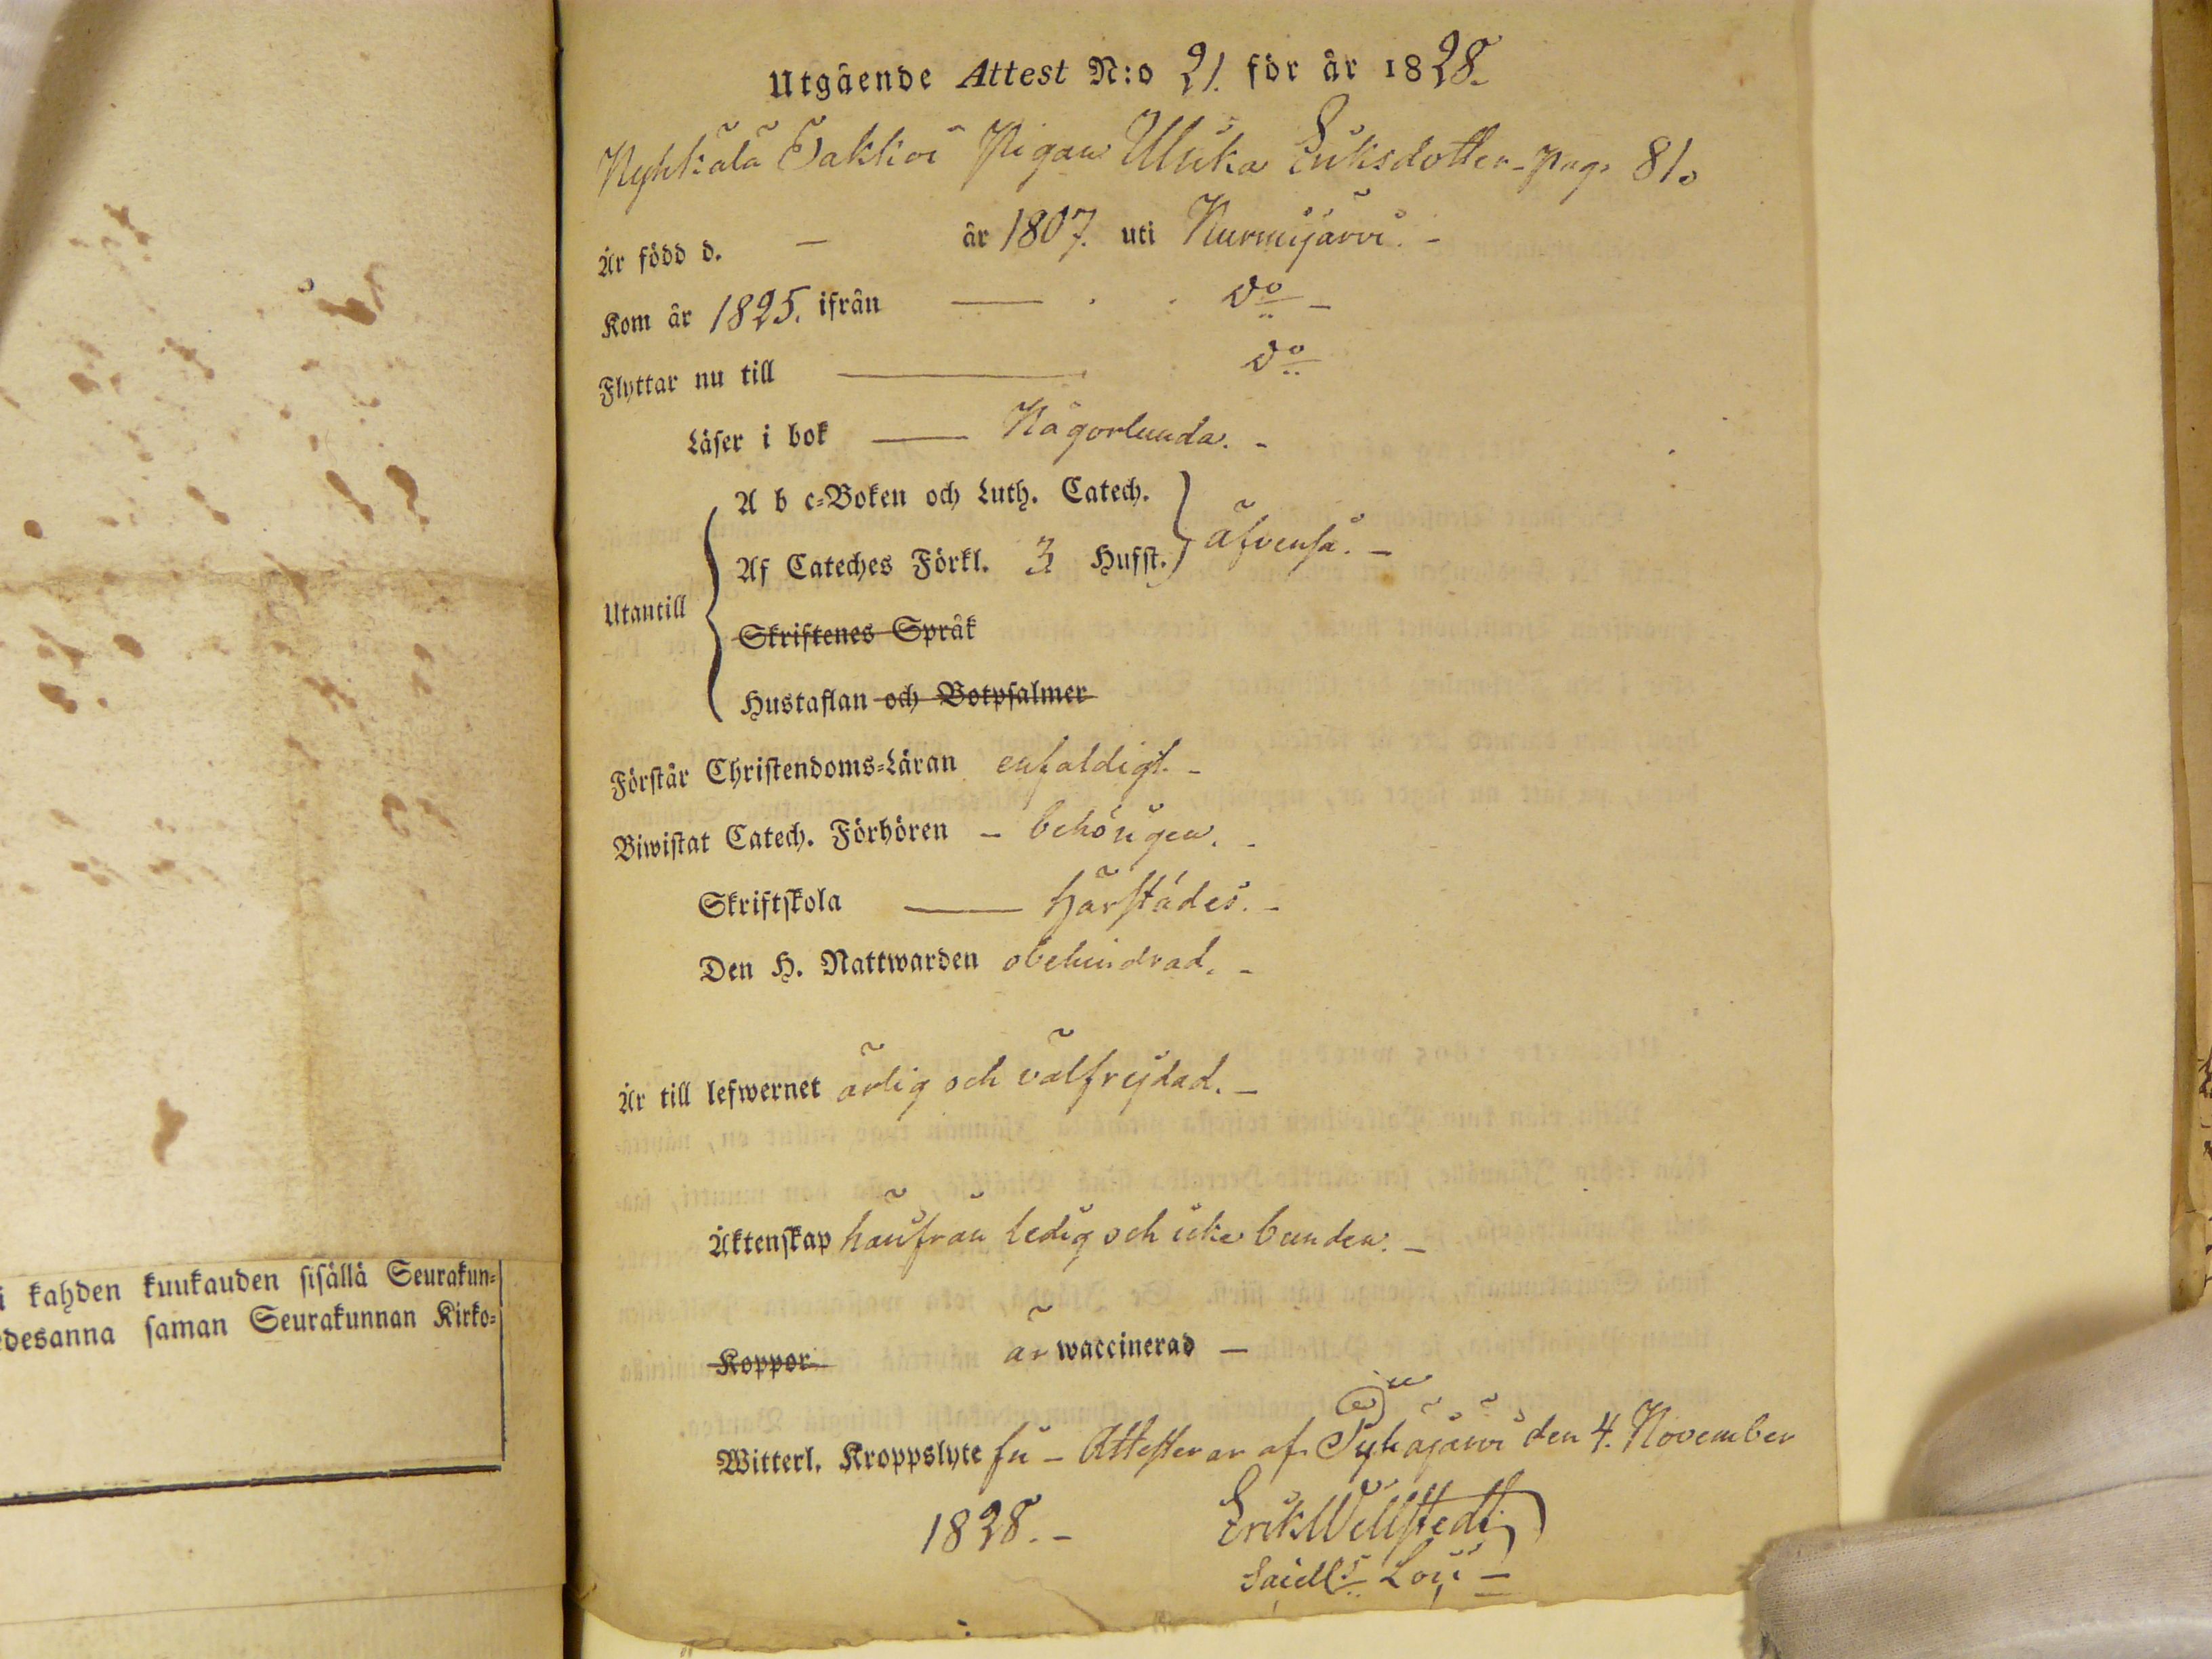 Utgående Attest N:o 21. för år 1828.
Nyhkälä Pigan Ulrika Eriksdotter - pag. 81.
Är född d. — år 1807. uti Nurmijärvi. -
Kom år 1825. ifrån — d:o -
Flyttar nu till — d:o
Läser i bok — Någorlunda. -
Utantill
A b c-Boken och Luth. Catech.
Af Cateches Förkl. 3 Hufst. äfvenså. -
Skriftenes Språk
Hustaflan och Botpsalmer
Förstår Christendoms-Läran enfaldigt. -
Biwistat Catech. Förhören - behörigen. -
Skriftskola — härstädes. -
Den H. Nattwarden obehindrad. -
Är till lefwernet ärlig och välfrejdad. -
Äktenskap härifrån ledig och icke bunden. -
Koppor är waccinerad —
Witterl. Kroppslyte fri - Attesterar af Pyhäjärvi den 4. November
1828. - Erik Wellstedt
i kahden kuukauden sisällä Seurakun-
desanna saman Seurakunnan Kirko-